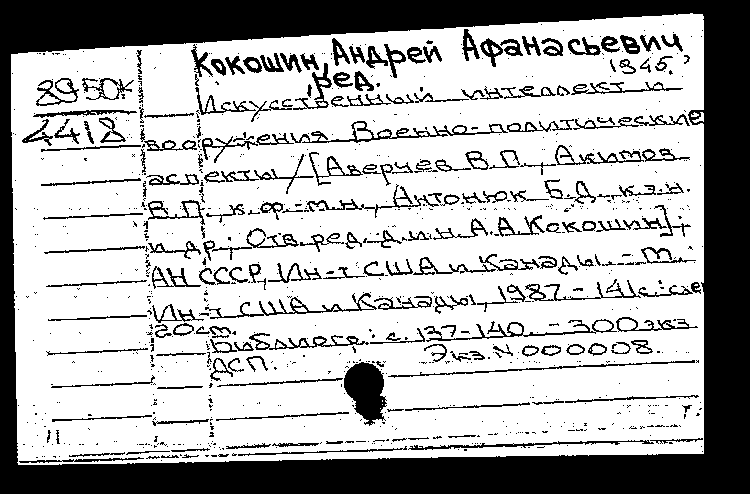 Кокошин, Андрей Афанасьевич
ред. 1945.
8950К
4418
Искусственный интеллект и
вооружения Военно-политические
аспекты / [Аверчев В.П., Акимов
В.П., к.ф.-м.н., Антонюк Б.Д., к.э.н.
и др; Отв. ред. д.и.н. А.А. Кокошин];
АН СССР, Ин-т США и Канады. - М.:
Ин-т США и Канады, 1987. - 141с.: схем
20см.
Библиогр.: с. 137-140. - 300 экз
ДСП. Экз. N 000008.